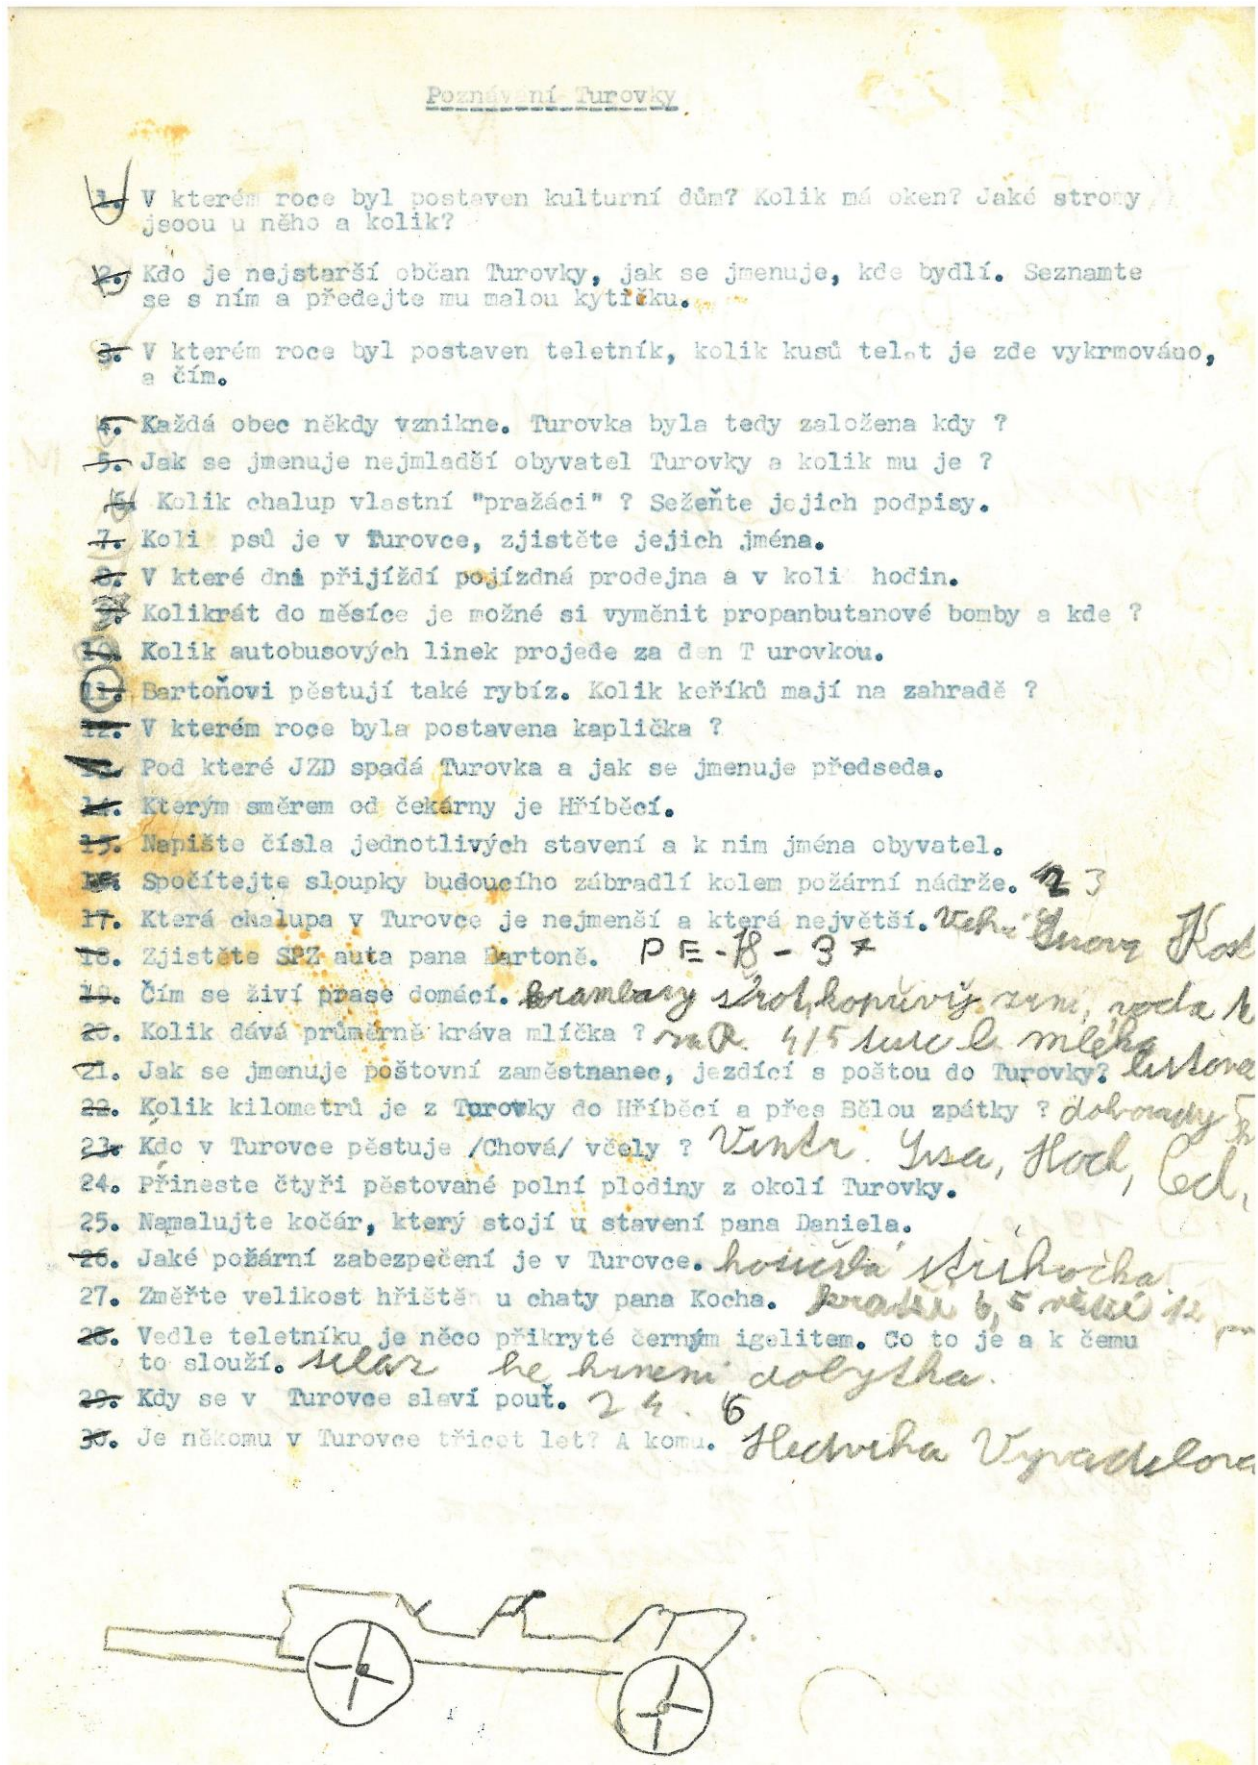 Poznávání Turovky
1. V kterém roce byl postaven kulturní dům? Kolik má oken? Jaké stromy
jsoou u něho a kolik?
2. Kdo je nejstarší občan Turovky, jak se jmenuje, kde bydlí. Seznamte
se s ním a předejte mu malou kytičku.
3. V kterém roce byl postaven teletník, kolik kusů telat je zde vykrmováno,
a čím.
4. Každá obec někdy vznikne. Turovka byla tedy založena kdy ?
5. Jak se jmenuje nejmladší obyvatel Turovky a kolik mu je ?
6. Kolik chalup vlastní "pražáci" ? Sežeňte jejich podpisy.
7. Koli psů je v Turovce, zjistěte jejich jména.
8. V které dni přijíždí pojízdná prodejna a v koli hodin.
9. Kolikrát do měsíce je možné si vyměnit propanbutanové bomby a kde ?
10. Kolik autobusových linek projede za den T urovkou.
11. Bartoňovi pěstují také rybíz. Kolik keříků mají na zahradě ?
12. V kterém roce byla postavena kaplička ?
13. Pod které JZD spadá Turovka a jak se jmenuje předseda.
14. Kterým směrem od čekárny je Hříběcí.
15. Napište čísla jednotlivých stavení a k nim jména obyvatel.
16. Spočítejte sloupky budoucího zábradlí kolem požární nádrže. 23
17. Která chalupa v Turovce je nejmenší a která největší.
18. Zjistěte SPZ auta pana Bartoně. PE-18-37
19. Čím se živí prase domácí. brambory šrot, kopřivy, zrní, voda
20. Kolik dává průměrně kráva mlíčka ? 4/5 mléka
21. Jak se jmenuje poštovní zaměstnanec, jezdící s poštou do Turovky?
22. Kolik kilometrů je z Turovky do Hříběcí a přes Bělou zpátky ?
23. Kdo v Turovce pěstuje /Chová/ včely ? Vintr. Hoch,
24. Přineste čtyři pěstované polní plodiny z okolí Turovky.
25. Namalujte kočár, který stojí u stavení pana Daniela.
26. Jaké požární zabezpečení je v Turovce.
27. Změřte velikost hřiště u chaty pana Kocha. kratší 6,5 větší 12
28. Vedle teletníku je něco přikryté černým igelitem. Co to je a k čemu
to slouží. dobytka.
29. Kdy se v Turovce slaví pouť. 24. 6
30. Je někomu v Turovce třicet let? A komu.